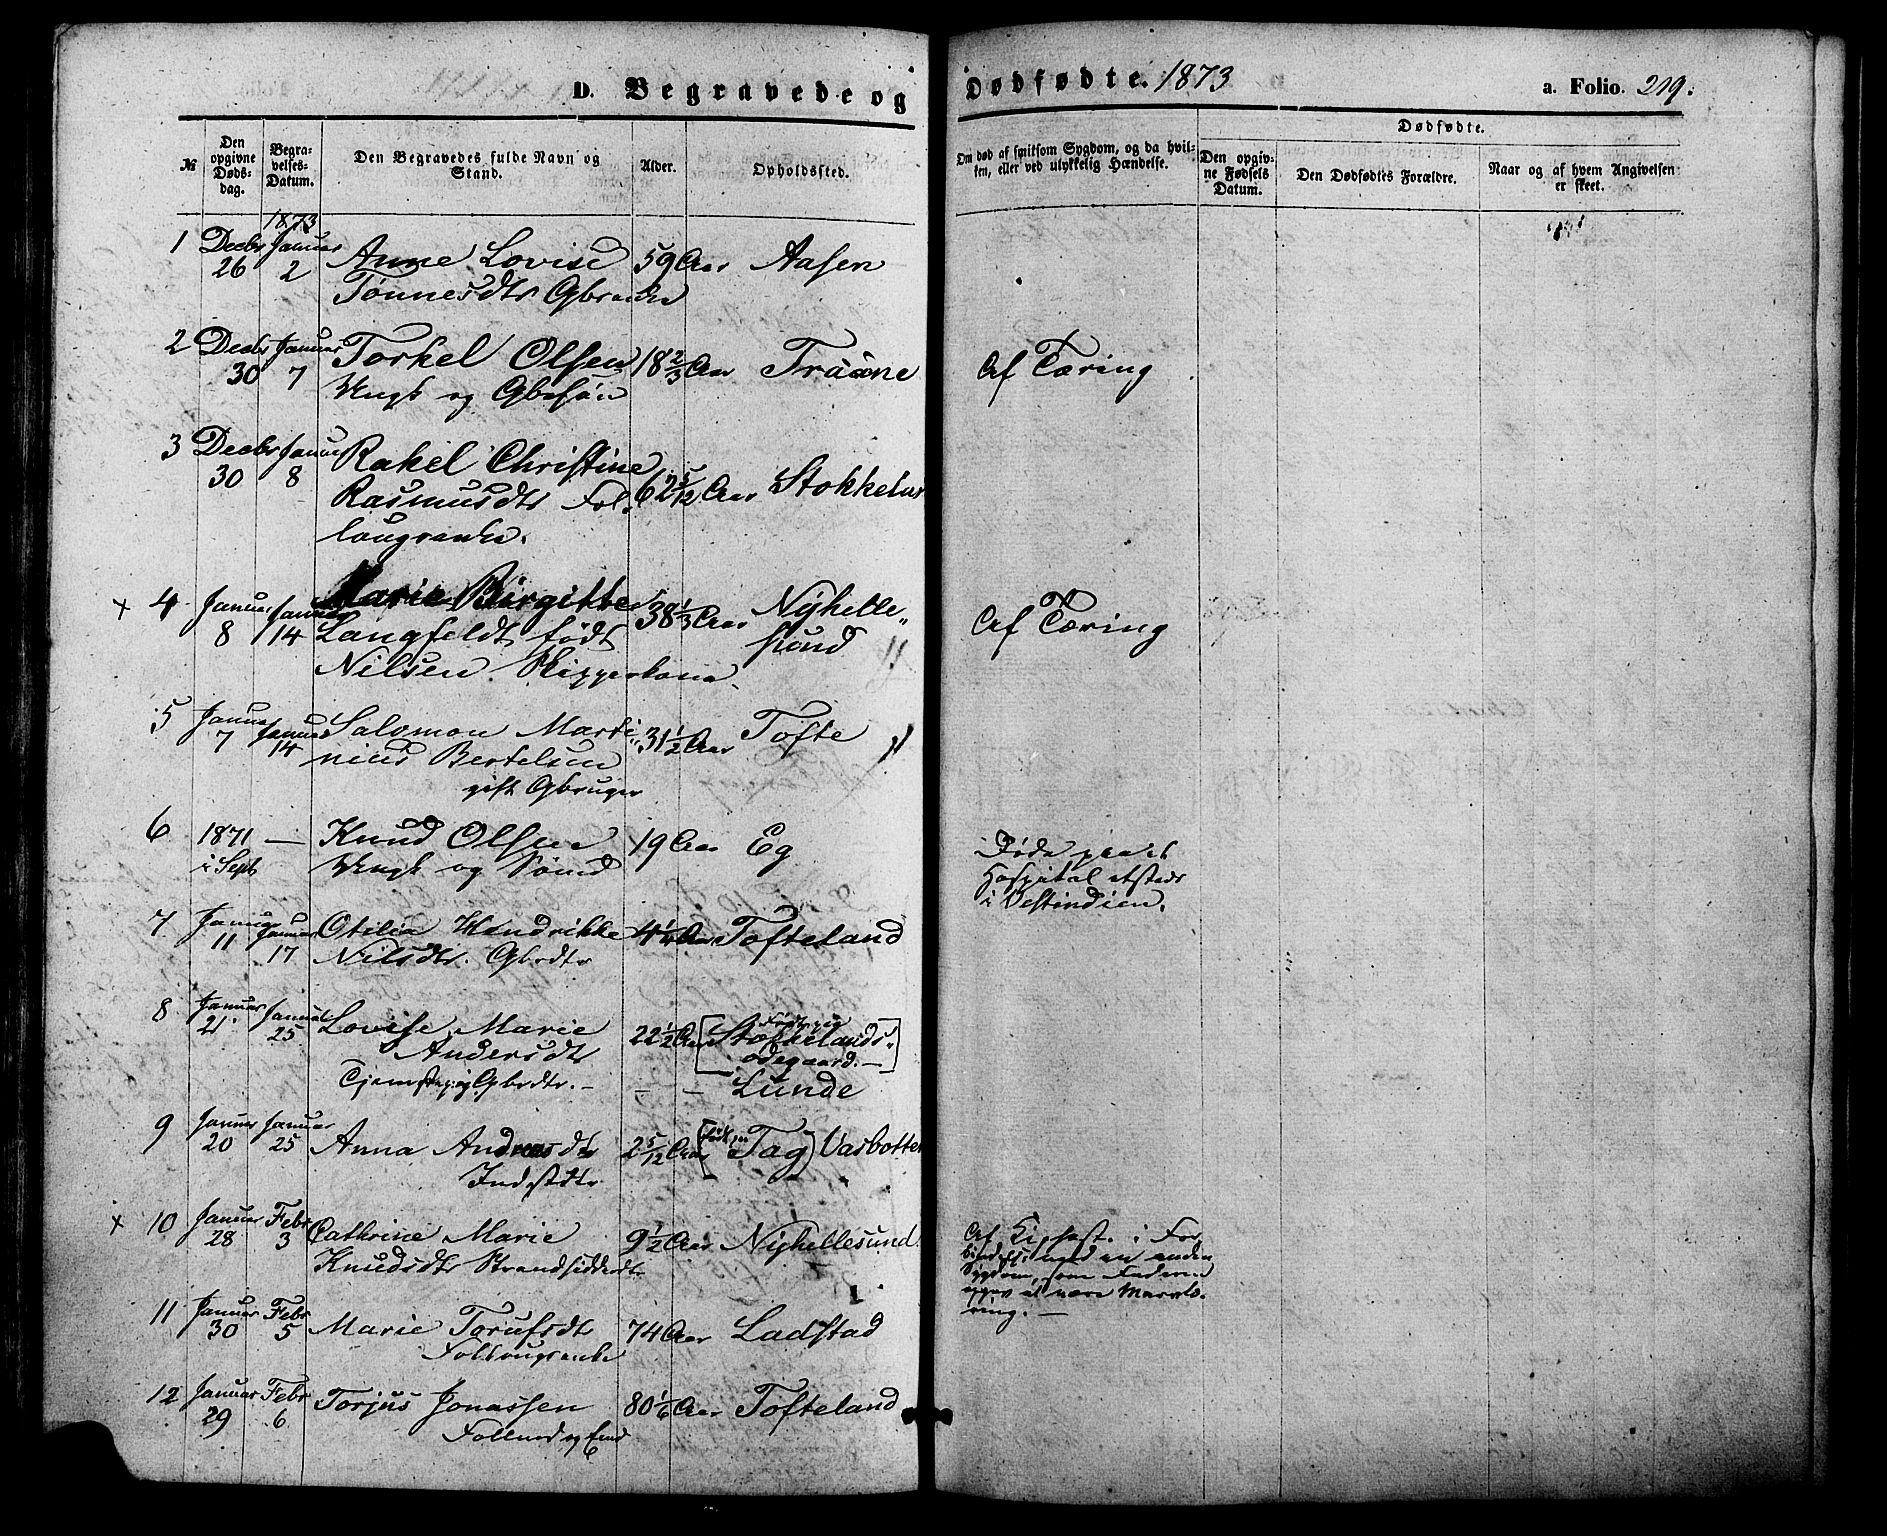 D. Begravede og Dødfødte. 1873 a. Folio. 219.
№ Den opgivne Dødsdag. Begravelses-Datum. Den Begravedes fulde Navn og Stand. Alder. Opholdssted. Om død af smitsom Sygdom, og da hvilken, eller ved ulykkelig Hændelse. Dødfødte.
Den opgivne Fødsels Datum. Den Dødfødtes Forældre. Naar og af hvem Angivelsen er skeet.
1873
1 Decbr Januar Anne Lovise 59 Aar Aasen
26 2 Tønnesdtr Gbrenke
2 Decbr Januar Torkel Olsen 18 2/3 Aar Traane Af Tæring
30 7 Ungk og Gbrsøn
3 Decbr Januar Rakel Christine
30 8 Rasmusdtr Fol- 62 5/12 Aar Stokkeland
laugsenke.
× 4 Januar Januar Marie Birgitte 38 1/3 Aar Nyhelle- Af Tæring
8 14 Langfeldt født sund
Nilsen. Skipperkone
5 Januar Januar Salomon Marti- 31 1/2 Aar Tofte
7 14 nius Bertelsen
gift Gbruger
6 1871 — Knud Olsen 19 Aar Eg Døde paa et
i Sept Ungk og Sømd Hospital etsteds
i Vestindien.
7 Januar Januar Otilia Hendrikke 4 1/4 Aar Tofteland
11 17 Nilsdtr. Gbrdtr
8 Januar Januar Lovise Marie 22 1/2 Aar [Født paa Stokkelands-
21 25 Andersdtr ødegaard. —]
Tjenestepig Gbrdtr. — — — Lunde
9 Januar Januar Anna Andreasdtr 2 5/12 Aar (født paa Tag) Vasbotten
20 25 Indstdtr
× 10 Januar Febr Cathrine Marie 9 1/2 Aar Nyhellesund. Af Kighost. i For-
28 3 Knudsdtr Strandsidderdtr bindelse med en anden
Sygdom, som Faderen
opgav at være
11 Januar Febr Marie 74 Aar Ladstad
30 5 Follaugsenke
12 Januar Febr Torjus Jonassen 80 1/6 Aar Tofteland
29 6 Follmd og Enkmd